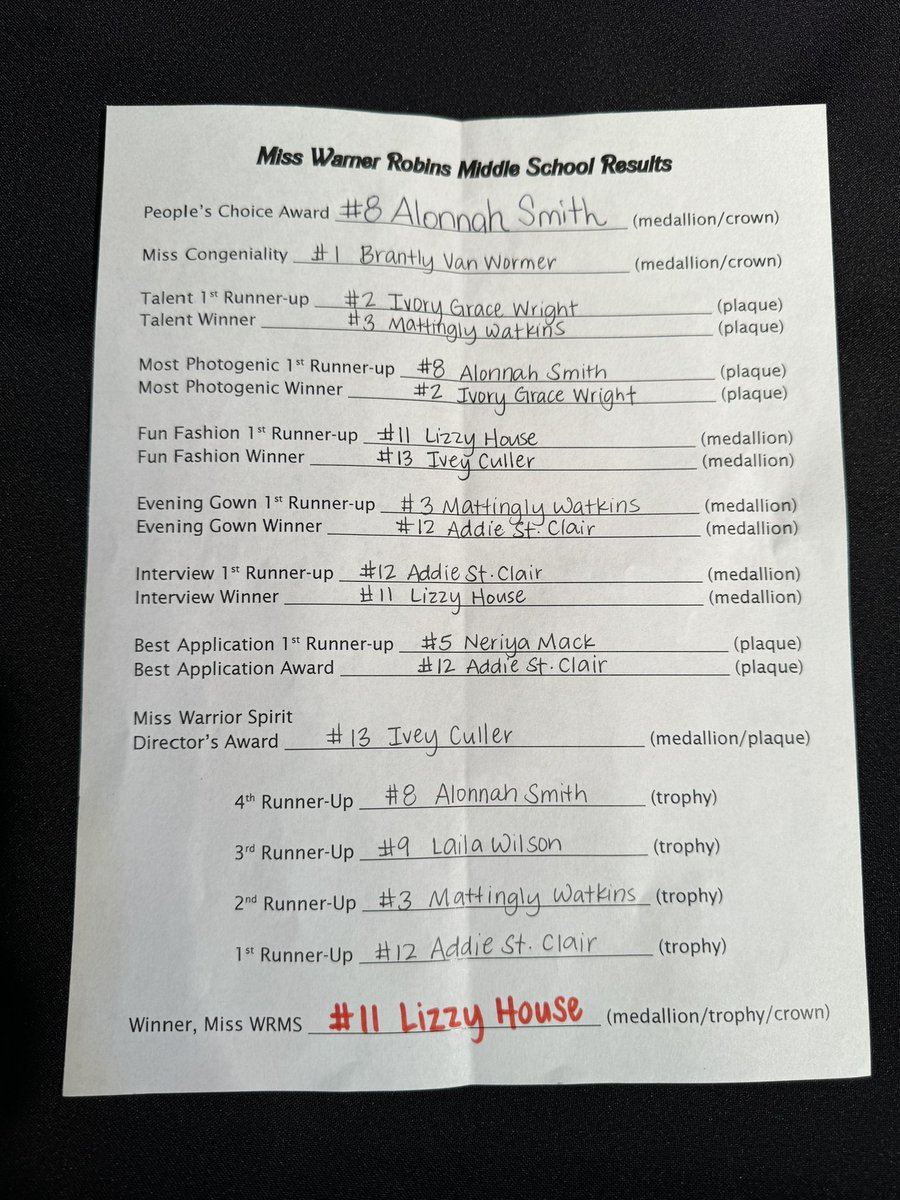 Miss Warner Robins Middle School Results
People's Choice Award #8 Alonnah Smith (medallion/crown)
Miss Congeniality #1 Brantly Van Wormer (medallion/crown)
Talent 1st Runner-up #2 Ivory Grace Wright (plaque)
Talent Winner #3 Mattingly Watkins (plaque)
Most Photogenic 1st Runner-up #8 Alonnah Smith (plaque)
Most Photogenic Winner #2 Ivory Grace Wright (plaque)
Fun Fashion 1st Runner-up #11 Lizzy House (medallion)
Fun Fashion Winner #13 Ivey Culler (medallion)
Evening Gown 1st Runner-up #3 Mattingly Watkins (medallion)
Evening Gown Winner #12 Addie St. Clair (medallion)
Interview 1st Runner-up #12 Addie St. Clair (medallion)
Interview Winner #11 Lizzy House (medallion)
Best Application 1st Runner-up #5 Neriya Mack (plaque)
Best Application Award #12 Addie St. Clair (plaque)
Miss Warrior Spirit
Director's Award #13 Ivey Culler (medallion/plaque)
4th Runner-Up #8 Alonnah Smith (trophy)
3rd Runner-Up #9 Laila Wilson (trophy)
2nd Runner-Up #3 Mattingly Watkins (trophy)
1st Runner-Up #12 Addie St. Clair (trophy)
Winner, Miss WRMS #11 Lizzy House (medallion/trophy/crown)